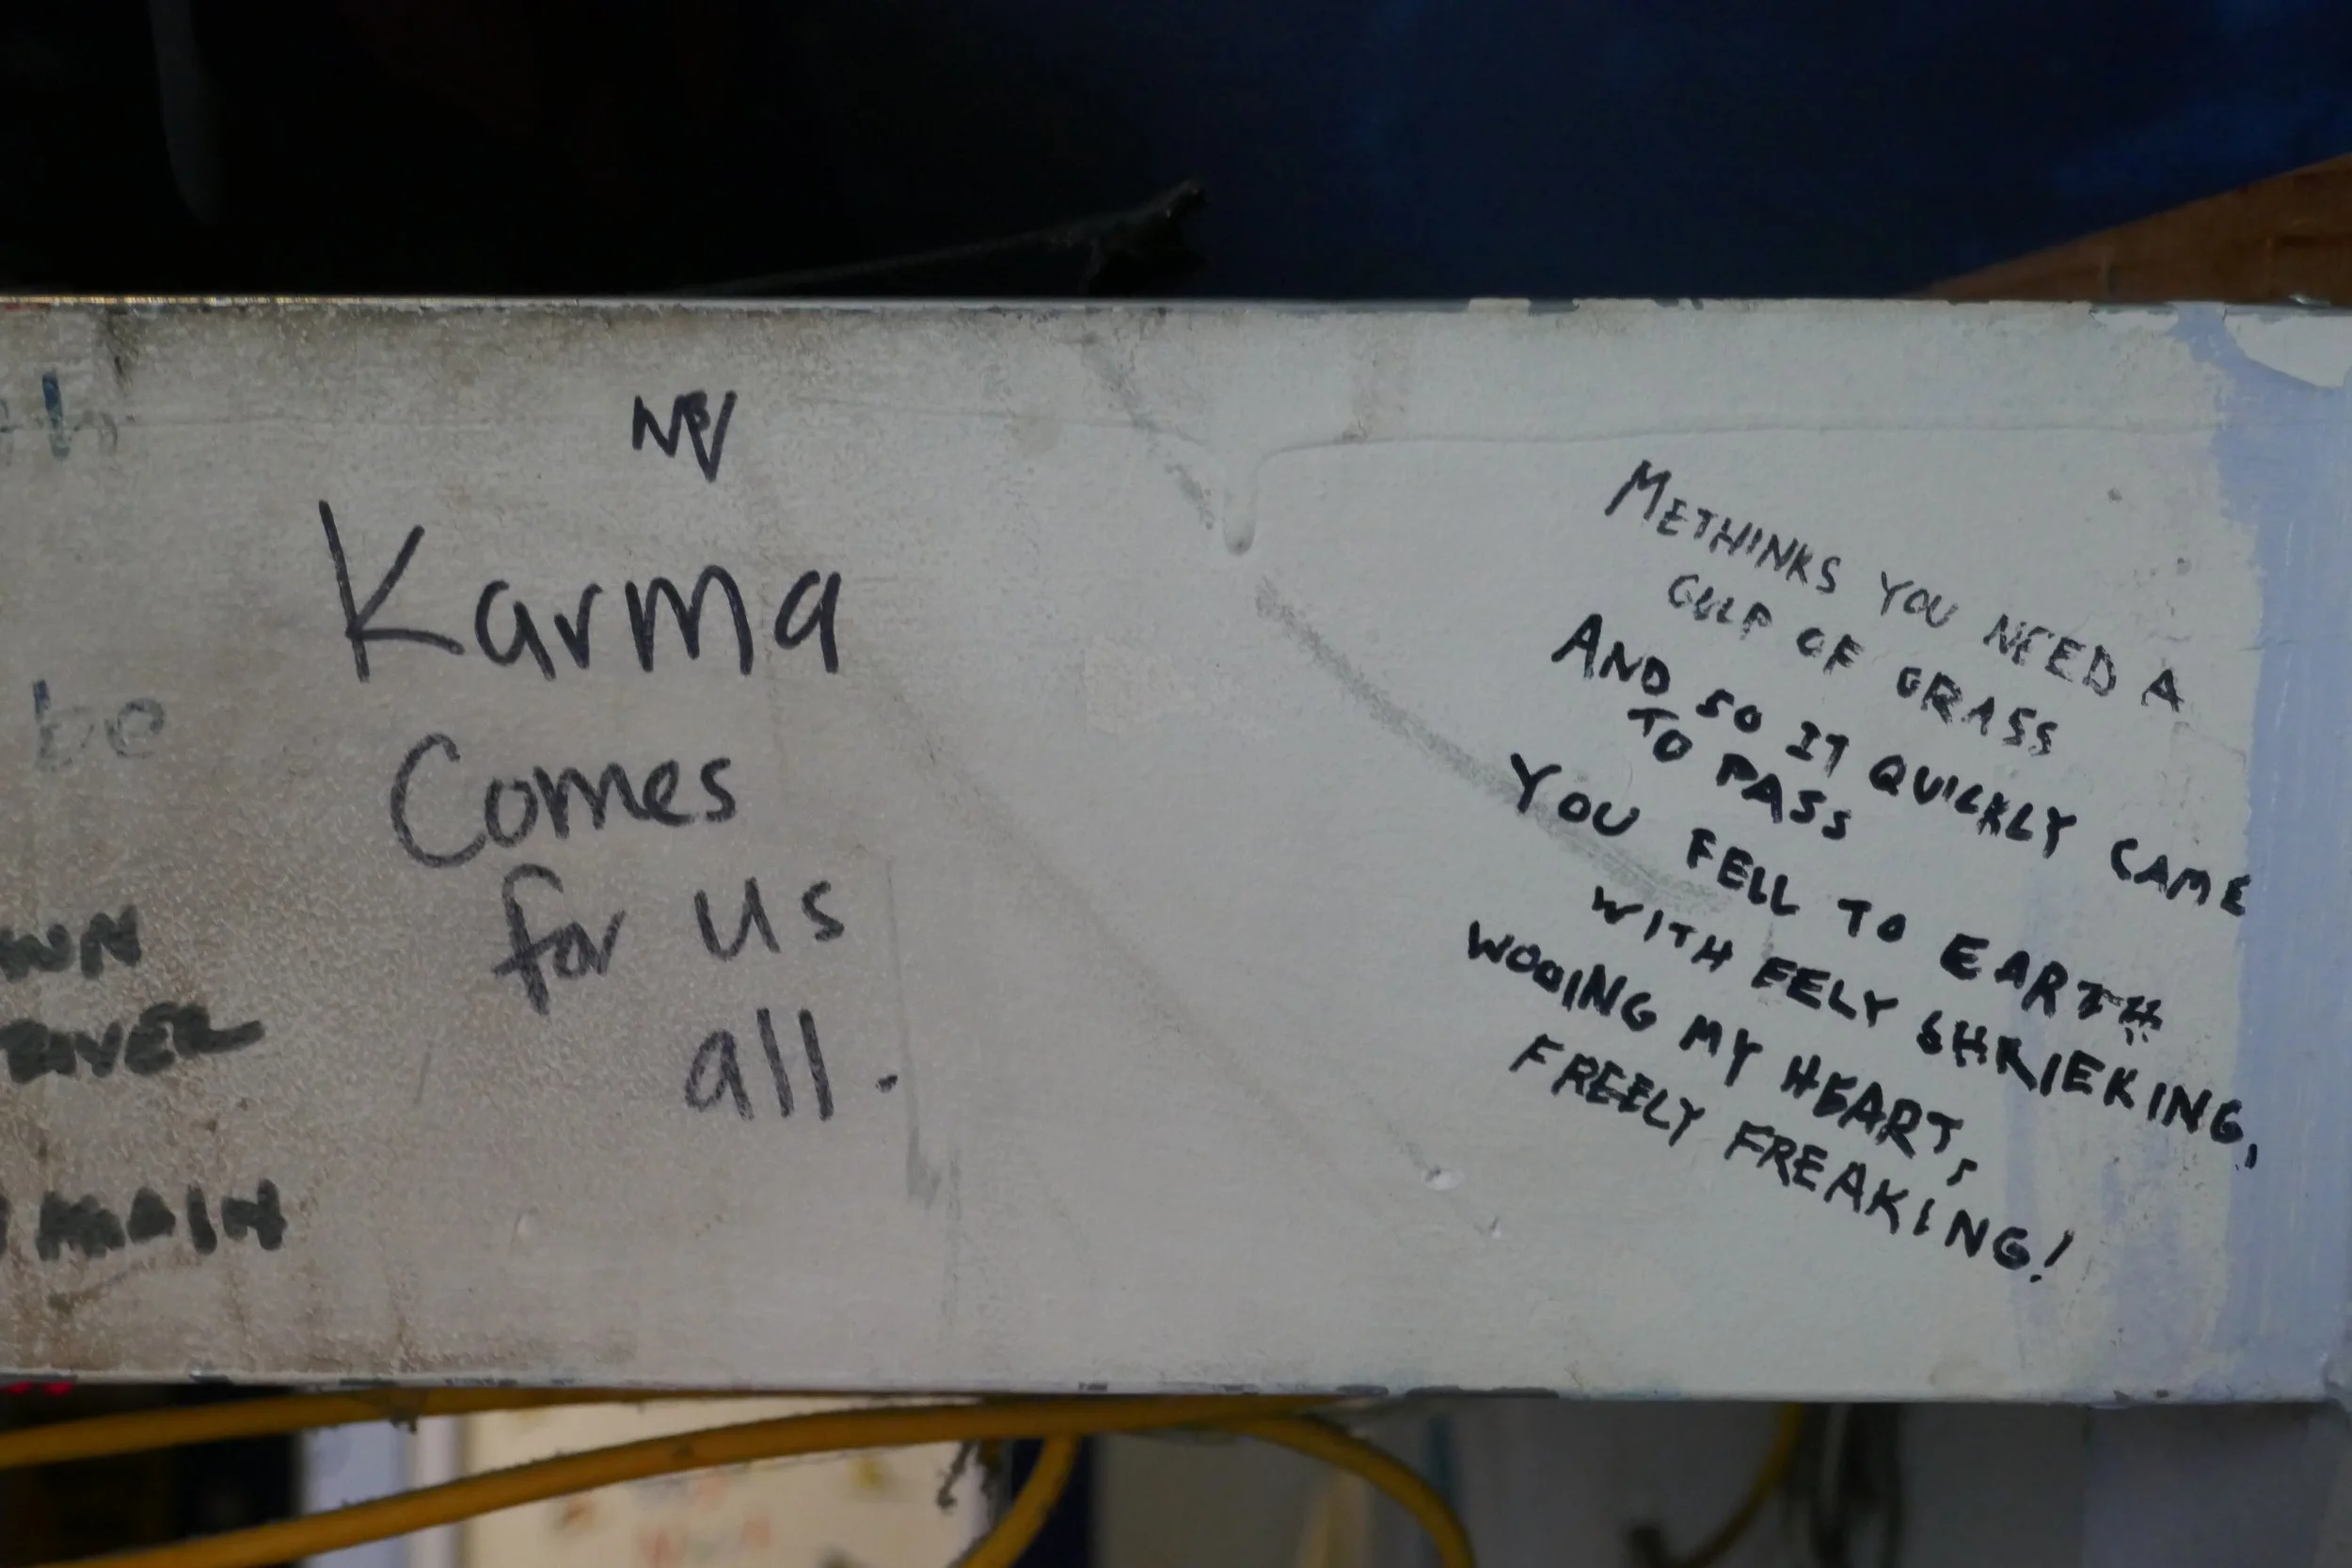 be
WN
MAIN
Karma
Comes
for us
all.
METHINKS YOU NEED A
GULP OF GRASS
AND SO IT QUICKLY CAME
TO PASS
YOU FELL TO EARTH
WITH EELY SHRIEKING,
WOOING MY HEART,
FREELY FREAKING!